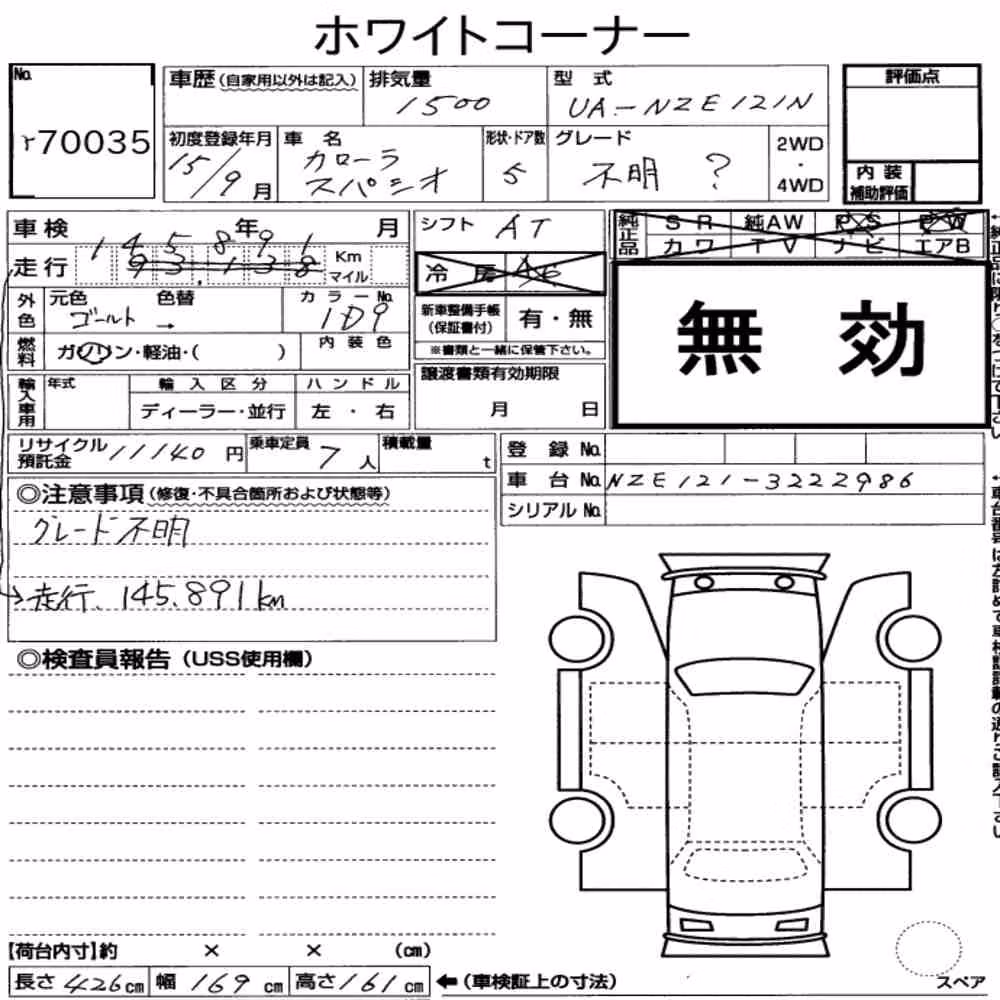 ホワイトコーナー
No.
70035
車歴(自家用以外は記入)
排気量
1500
型 式
UA-NZE121N
評価点
初度登録年月
15/9月
車 名
カローラ
スパシオ
形状・ドア数
5
グレード
不明 ?
2WD
・
4WD
内 装
補助評価
車検 年 月
145891
走行 93,138 Km
マイル
シフト AT
純正品
SR 純AW PS PW
カワ TV ナビ エアB
冷 房 AC
外色
元色 色替
ゴールト →
カラーNo.
1D9
新車整備手帳
(保証書付)
有・無
※書類と一緒に保管下さい。
無 効
燃料
ガソリン・軽油・( )
内装色
譲渡書類有効期限
月 日
輸入車用
年式
輸入区分
ディーラー・並行
ハンドル
左 ・ 右
リサイクル
預託金
11140円
乗車定員
7人
積載量
t
登 録 No.
車 台 No. NZE121-3222986
シリアル No.
◎注意事項(修復・不具合箇所および状態等)
グレード不明
走行、145.891km
◎検査員報告(USS使用欄)
【荷台内寸】約 × × (cm)
長さ426cm 幅169cm 高さ161cm ←(車検証上の寸法)
スペア